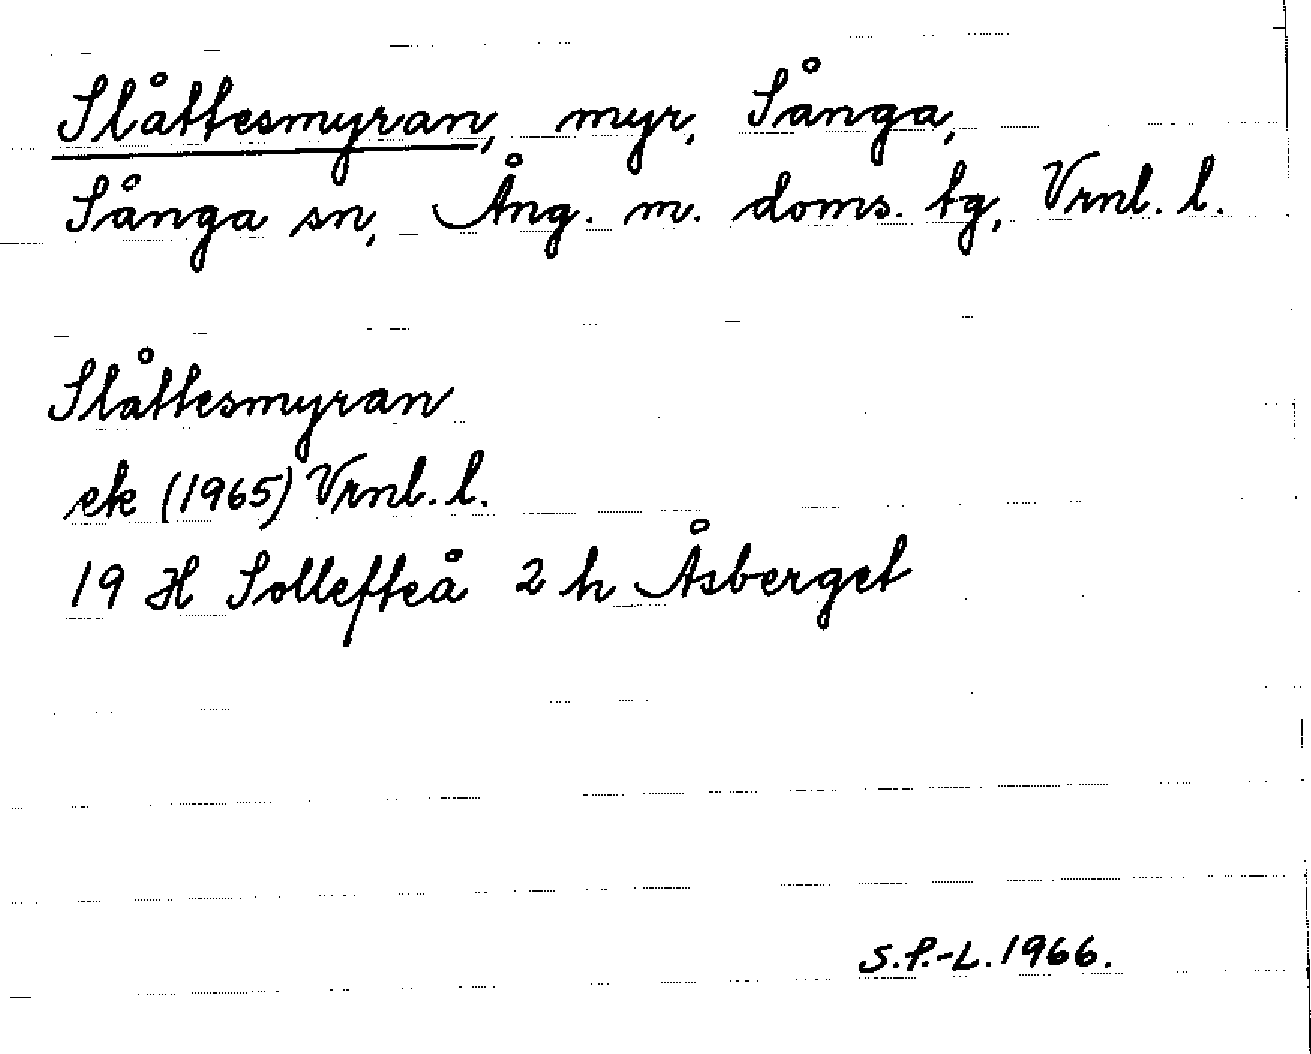 Slåttesmyran, myr, Sånga,
Sånga sn, Ång. m. doms. tg, Vrnl. l.
Slåttesmyran
ek (1965) Vrnl. l.
19 H Sollefteå 2 h Åsberget
S.P.-L. 1966.